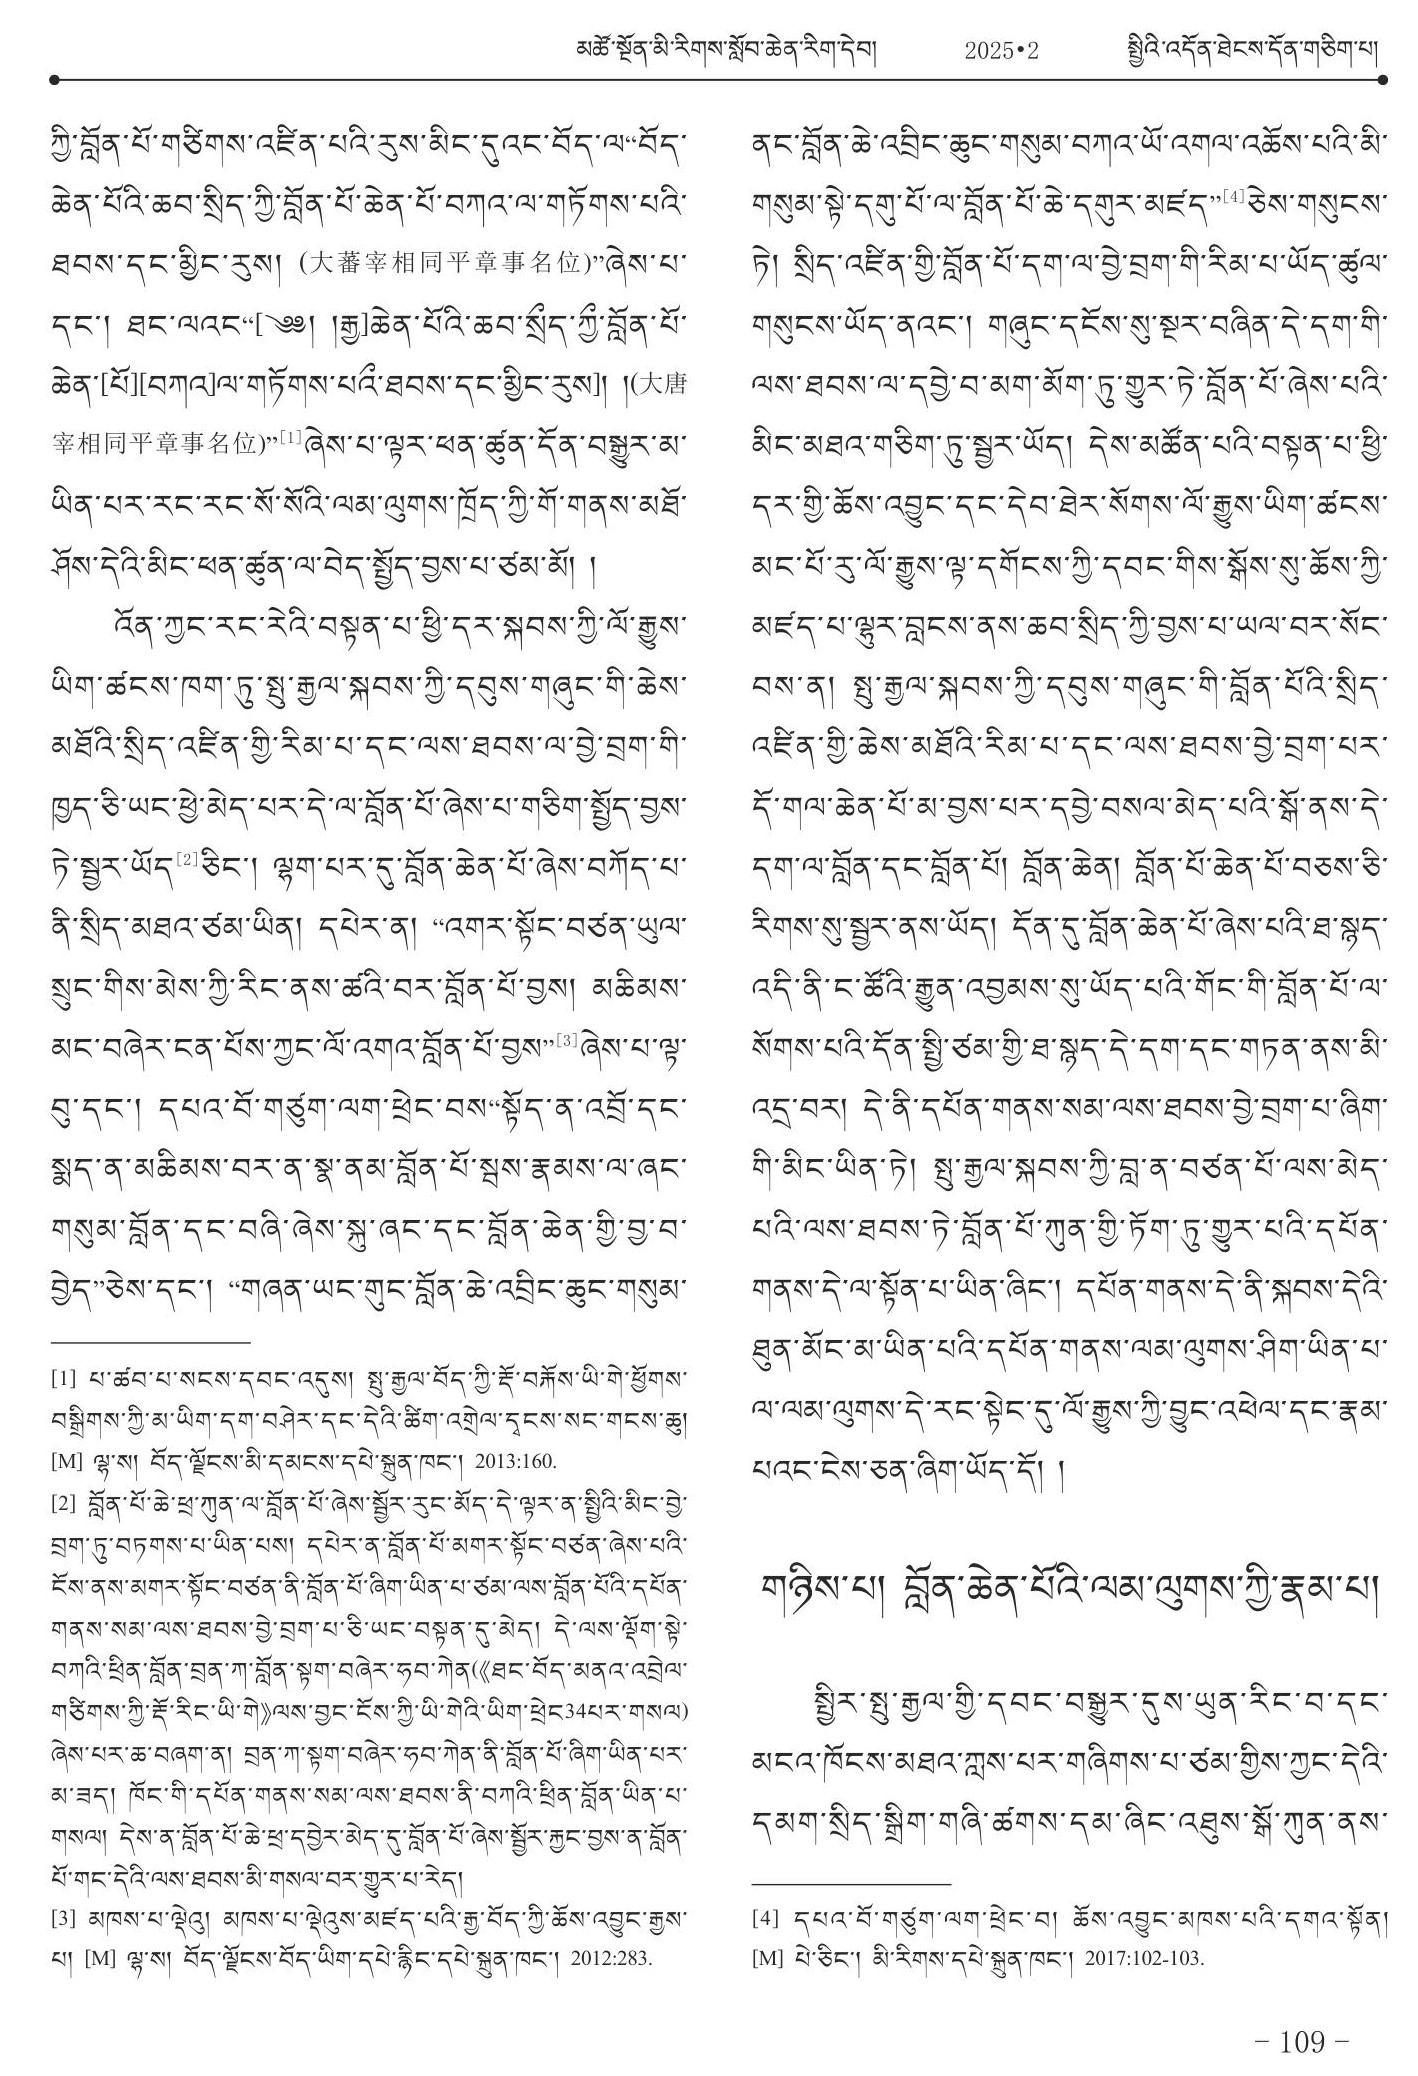 མཚོ་སྔོན་མི་རིགས་སློབ་ཆེན་རིག་དེབ། 2025•2 སྤྱིའི་འདོན་ཐེངས་དོན་གཅིག་པ།
ཀྱི་བློན་པོ་གཙིགས་འཛིན་པའི་རུས་མིང་དུའང་བོད་ལ“བོད་
ཆེན་པོའི་ཆབ་སྲིད་ཀྱི་བློན་པོ་ཆེན་པོ་བཀའ་ལ་གཏོགས་པའི་
ཐབས་དང་མྱིང་རུས། (大蕃宰相同平章事名位)”ཞེས་པ་
དང་། ཐང་ལའང“[༄༅། །རྒྱ]ཆེན་པོའི་ཆབ་སྲྀད་ཀྱྀ་བློན་པོ་
ཆེན་[པོ][བཀའ]ལ་གཏོགས་པའྀ་ཐབས་དང་མྱིང་རུས]། །(大唐
宰相同平章事名位)”[1]ཞེས་པ་ལྟར་ཕན་ཚུན་དོན་བསྒྱུར་མ་
ཡིན་པར་རང་རང་སོ་སོའི་ལམ་ལུགས་ཁྲོད་ཀྱི་གོ་གནས་མཐོ་
ཤོས་དེའི་མིང་ཕན་ཚུན་ལ་བེད་སྤྱོད་བྱས་པ་ཙམ་མོ། །
འོན་ཀྱང་རང་རེའི་བསྟན་པ་ཕྱི་དར་སྐབས་ཀྱི་ལོ་རྒྱུས་
ཡིག་ཚངས་ཁག་ཏུ་སྤུ་རྒྱལ་སྐབས་ཀྱི་དབུས་གཞུང་གི་ཆེས་
མཐོའི་སྲིད་འཛིན་གྱི་རིམ་པ་དང་ལས་ཐབས་ལ་བྱེ་བྲག་གི་
ཁྱད་ཅི་ཡང་ཕྱེ་མེད་པར་དེ་ལ་བློན་པོ་ཞེས་པ་གཅིག་སྤྱོད་བྱས་
ཏེ་སྦྱར་ཡོད[2]ཅིང་། ལྷག་པར་དུ་བློན་ཆེན་པོ་ཞེས་བཀོད་པ་
ནི་སྲིད་མཐའ་ཙམ་ཡིན། དཔེར་ན། “འགར་སྟོང་བཙན་ཡུལ་
སྲུང་གིས་མེས་ཀྱི་རིང་ནས་ཚའི་བར་བློན་པོ་བྱས། མཆིམས་
མང་བཞེར་ངན་པོས་ཀྱང་ལོ་འགའ་བློན་པོ་བྱས”[3]ཞེས་པ་ལྟ་
བུ་དང་། དཔའ་བོ་གཙུག་ལག་ཕྲེང་བས“སྟོད་ན་འབྲོ་དང་
སྨད་ན་མཆིམས་བར་ན་སྣ་ནམ་བློན་པོ་སྦས་རྣམས་ལ་ཞང་
གསུམ་བློན་དང་བཞི་ཞེས་སྐུ་ཞང་དང་བློན་ཆེན་གྱི་བྱ་བ་
བྱེད”ཅེས་དང་། “གཞན་ཡང་གུང་བློན་ཆེ་འབྲིང་ཆུང་གསུམ་
[1] པ་ཚབ་པ་སངས་དབང་འདུས། སྤུ་རྒྱལ་བོད་ཀྱི་རྡོ་བརྐོས་ཡི་གེ་ཕྱོགས་
བསྒྲིགས་ཀྱི་མ་ཡིག་དག་བཤེར་དང་དེའི་ཚིག་འགྲེལ་དྭངས་སང་གངས་ཆུ།
[M] ལྷ་ས། བོད་ལྗོངས་མི་དམངས་དཔེ་སྐྲུན་ཁང་། 2013:160.
[2] བློན་པོ་ཆེ་ཕྲ་ཀུན་ལ་བློན་པོ་ཞེས་སྦྱོར་རུང་མོད་དེ་ལྟར་ན་སྤྱིའི་མིང་བྱེ་
བྲག་ཏུ་བཏགས་པ་ཡིན་པས། དཔེར་ན་བློན་པོ་མགར་སྟོང་བཙན་ཞེས་པའི་
ངོས་ནས་མགར་སྟོང་བཙན་ནི་བློན་པོ་ཞིག་ཡིན་པ་ཙམ་ལས་བློན་པོའི་དཔོན་
གནས་སམ་ལས་ཐབས་བྱེ་བྲག་པ་ཅི་ཡང་བསྟན་དུ་མེད། དེ་ལས་ལྡོག་སྟེ་
བཀའི་ཕྲིན་བློན་བྲན་ཀ་བློན་སྟག་བཞེར་ཧབ་ཀེན(《ཐང་བོད་མནའ་འབྲེལ་
གཙིགས་ཀྱི་རྡོ་རིང་ཡི་གེ》ལས་བྱང་ངོས་ཀྱི་ཡི་གེའི་ཡིག་ཕྲེང34པར་གསལ)
ཞེས་པར་ཆ་བཞག་ན། བྲན་ཀ་སྟག་བཞེར་ཧབ་ཀེན་ནི་བློན་པོ་ཞིག་ཡིན་པར་
མ་ཟད། ཁོང་གི་དཔོན་གནས་སམ་ལས་ཐབས་ནི་བཀའི་ཕྲིན་བློན་ཡིན་པ་
གསལ། དེས་ན་བློན་པོ་ཆེ་ཕྲ་དབྱེར་མེད་དུ་བློན་པོ་ཞེས་སྦྱོར་རྐྱང་བྱས་ན་བློན་
པོ་གང་དེའི་ལས་ཐབས་མི་གསལ་བར་གྱུར་པ་རེད།
[3] མཁས་པ་ལྡེའུ། མཁས་པ་ལྡེའུས་མཛད་པའི་རྒྱ་བོད་ཀྱི་ཆོས་འབྱུང་རྒྱས་
པ། [M] ལྷ་ས། བོད་ལྗོངས་བོད་ཡིག་དཔེ་རྙིང་དཔེ་སྐྲུན་ཁང་། 2012:283.
ནང་བློན་ཆེ་འབྲིང་ཆུང་གསུམ་བཀའ་ཡོ་འགལ་འཆོས་པའི་མི་
གསུམ་སྟེ་དགུ་པོ་ལ་བློན་པོ་ཆེ་དགུར་མཛད”[4]ཅེས་གསུངས་
ཏེ། སྲིད་འཛིན་གྱི་བློན་པོ་དག་ལ་བྱེ་བྲག་གི་རིམ་པ་ཡོད་ཚུལ་
གསུངས་ཡོད་ནའང་། གཞུང་དངོས་སུ་སྔར་བཞིན་དེ་དག་གི་
ལས་ཐབས་ལ་དབྱེ་བ་མག་མོག་ཏུ་གྱུར་ཏེ་བློན་པོ་ཞེས་པའི་
མིང་མཐའ་གཅིག་ཏུ་སྦྱར་ཡོད། དེས་མཚོན་པའི་བསྟན་པ་ཕྱི་
དར་གྱི་ཆོས་འབྱུང་དང་དེབ་ཐེར་སོགས་ལོ་རྒྱུས་ཡིག་ཚངས་
མང་པོ་རུ་ལོ་རྒྱུས་ལྟ་དགོངས་ཀྱི་དབང་གིས་སྒོས་སུ་ཆོས་ཀྱི་
མཛད་པ་ལྷུར་བླངས་ནས་ཆབ་སྲིད་ཀྱི་བྱས་པ་ཡལ་བར་སོང་
བས་ན། སྤུ་རྒྱལ་སྐབས་ཀྱི་དབུས་གཞུང་གི་བློན་པོའི་སྲིད་
འཛིན་གྱི་ཆེས་མཐོའི་རིམ་པ་དང་ལས་ཐབས་བྱེ་བྲག་པར་
དོ་གལ་ཆེན་པོ་མ་བྱས་པར་དབྱེ་བསལ་མེད་པའི་སྒོ་ནས་དེ་
དག་ལ་བློན་དང་བློན་པོ། བློན་ཆེན། བློན་པོ་ཆེན་པོ་བཅས་ཅི་
རིགས་སུ་སྦྱར་ནས་ཡོད། དོན་དུ་བློན་ཆེན་པོ་ཞེས་པའི་ཐ་སྙད་
འདི་ནི་ང་ཚོའི་རྒྱུན་འབྱམས་སུ་ཡོད་པའི་གོང་གི་བློན་པོ་ལ་
སོགས་པའི་དོན་སྤྱི་ཙམ་གྱི་ཐ་སྙད་དེ་དག་དང་གཏན་ནས་མི་
འདྲ་བར། དེ་ནི་དཔོན་གནས་སམ་ལས་ཐབས་བྱེ་བྲག་པ་ཞིག་
གི་མིང་ཡིན་ཏེ། སྤུ་རྒྱལ་སྐབས་ཀྱི་བླ་ན་བཙན་པོ་ལས་མེད་
པའི་ལས་ཐབས་ཏེ་བློན་པོ་ཀུན་གྱི་ཏོག་ཏུ་གྱུར་པའི་དཔོན་
གནས་དེ་ལ་སྟོན་པ་ཡིན་ཞིང་། དཔོན་གནས་དེ་ནི་སྐབས་དེའི་
ཐུན་མོང་མ་ཡིན་པའི་དཔོན་གནས་ལམ་ལུགས་ཤིག་ཡིན་པ་
ལ་ལམ་ལུགས་དེ་རང་སྟེང་དུ་ལོ་རྒྱུས་ཀྱི་བྱུང་འཕེལ་དང་རྣམ་
པའང་ངེས་ཅན་ཞིག་ཡོད་དོ། །
གཉིས་པ། བློན་ཆེན་པོའི་ལམ་ལུགས་ཀྱི་རྣམ་པ།
སྤྱིར་སྤུ་རྒྱལ་གྱི་དབང་བསྒྱུར་དུས་ཡུན་རིང་བ་དང་
མངའ་ཁོངས་མཐའ་ཀླས་པར་གཞིགས་པ་ཙམ་གྱིས་ཀྱང་དེའི་
དམག་སྲིད་སྒྲིག་གཞི་ཚགས་དམ་ཞིང་འཐུས་སྒོ་ཀུན་ནས་
[4] དཔའ་བོ་གཙུག་ལག་ཕྲེང་བ། ཆོས་འབྱུང་མཁས་པའི་དགའ་སྟོན།
[M] པེ་ཅིང་། མི་རིགས་དཔེ་སྐྲུན་ཁང་། 2017:102-103.
– 109 –